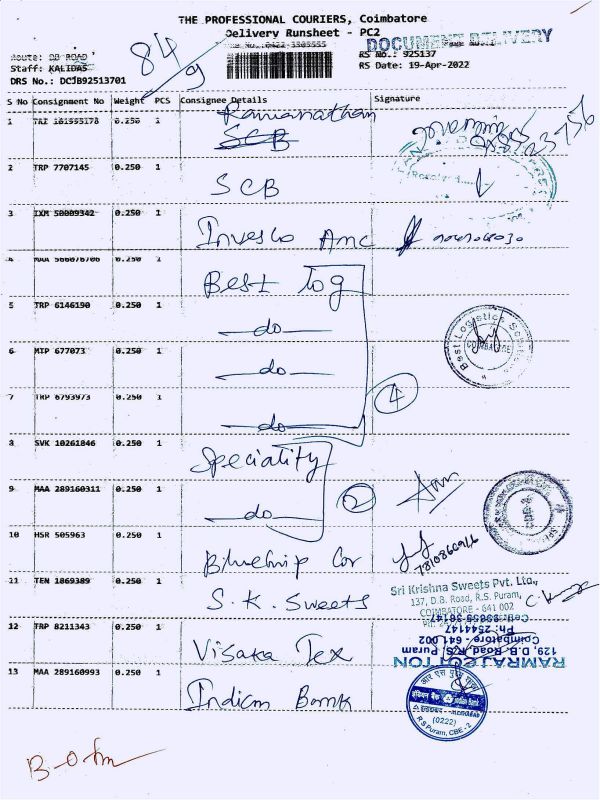 THE PROFESSIONAL COURIERS, Coimbatore
Delivery Runsheet - PC2
DOCUMENT DELIVERY
84/9
Route: DB ROAD
Staff: KALIDAS
DRS No.: DCJB92513701
RS No.: 925137
RS Date: 19-Apr-2022
S No Consignment No Weight PCS Consignee Details Signature
1 0.250 1 Ramanathan
SCB
2 TRP 7707145 0.250 1 SCB
3 IXM 50009342 0.250 1 Invesco Amc
4 0.250 1 Best log
5 TRP 6146190 0.250 1 do
6 MIP 677073 0.250 1 do
7 TRP 6793973 0.250 1 do
4
Best Logistics
COIMBATORE
8 SVK 10261846 0.250 1 Speciality
9 MAA 289160311 0.250 1 do
2
10 HSR 505963 0.250 1 Bluechip Cor
11 TEN 1869389 0.250 1 S.K. Sweets
Sri Krishna Sweets Pvt. Ltd.,
137, D.B. Road, R.S. Puram,
COIMBATORE - 641 002
12 TRP 8211343 0.250 1 Visaka Tex
RAMRAJ COTTON
129, D.B. Road, R.S. Puram
Coimbatore - 641 002
Ph: 2544147
13 MAA 289160993 0.250 1 Indian Bank
(0222)
R S Puram, CBE - 2